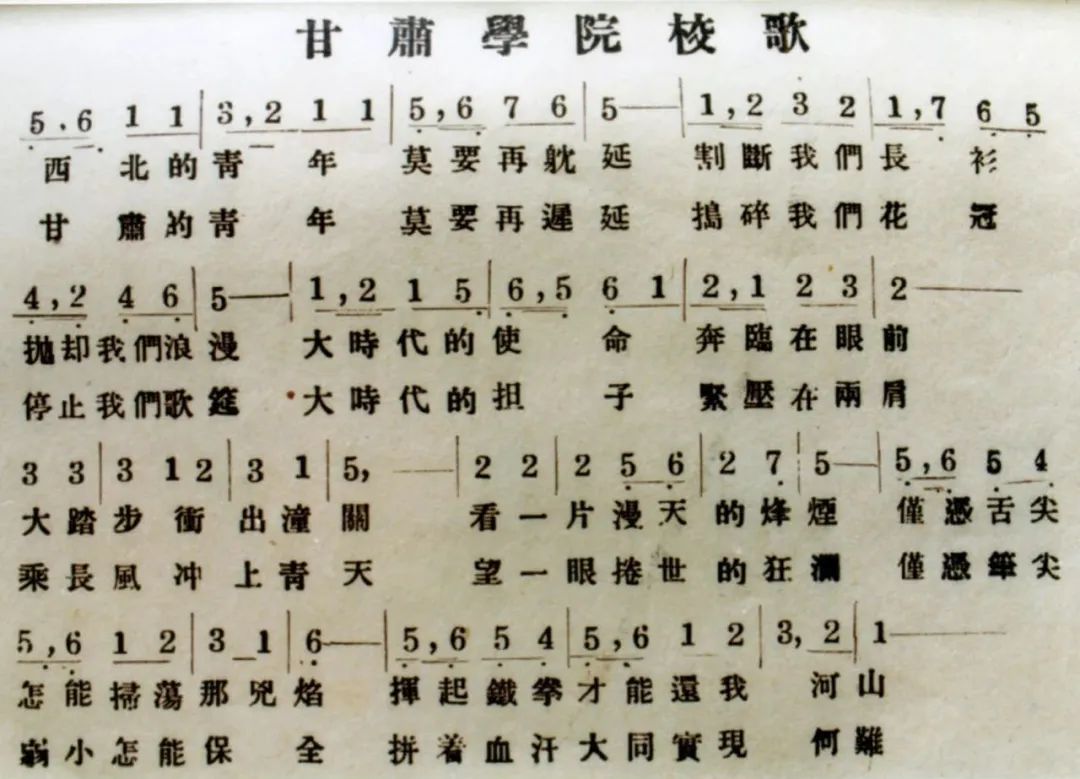 甘肅學院校歌
5.6 1 1 | 3,2 1 1 | 5,6 7 6 | 5— | 1,2 3 2 | 1,7 6 5
西北的青年 莫要再躭延 割斷我們長衫
甘肅的青年 莫要再遲延 搗碎我們花冠
4,2 4 6 | 5— | 1,2 1 5 | 6,5 6 1 | 2,1 2 3 | 2—
拋却我們浪漫 大時代的使命 奔臨在眼前
停止我們歌筵 大時代的担子 緊壓在兩肩
3 3 | 3 1 2 | 3 1 | 5, — | 2 2 | 2 5 6 | 2 7 | 5— | 5,6 5 4
大踏步衝出潼關 看一片漫天的烽煙 僅憑舌尖
乘長風冲上青天 望一眼捲世的狂瀾 僅憑筆尖
5,6 1 2 | 3 1 | 6— | 5,6 5 4 | 5,6 1 2 | 3,2 | 1—
怎能掃蕩那兇焰 揮起鐵拳才能還我河山
弱小怎能保全 拼着血汗大同實現何難